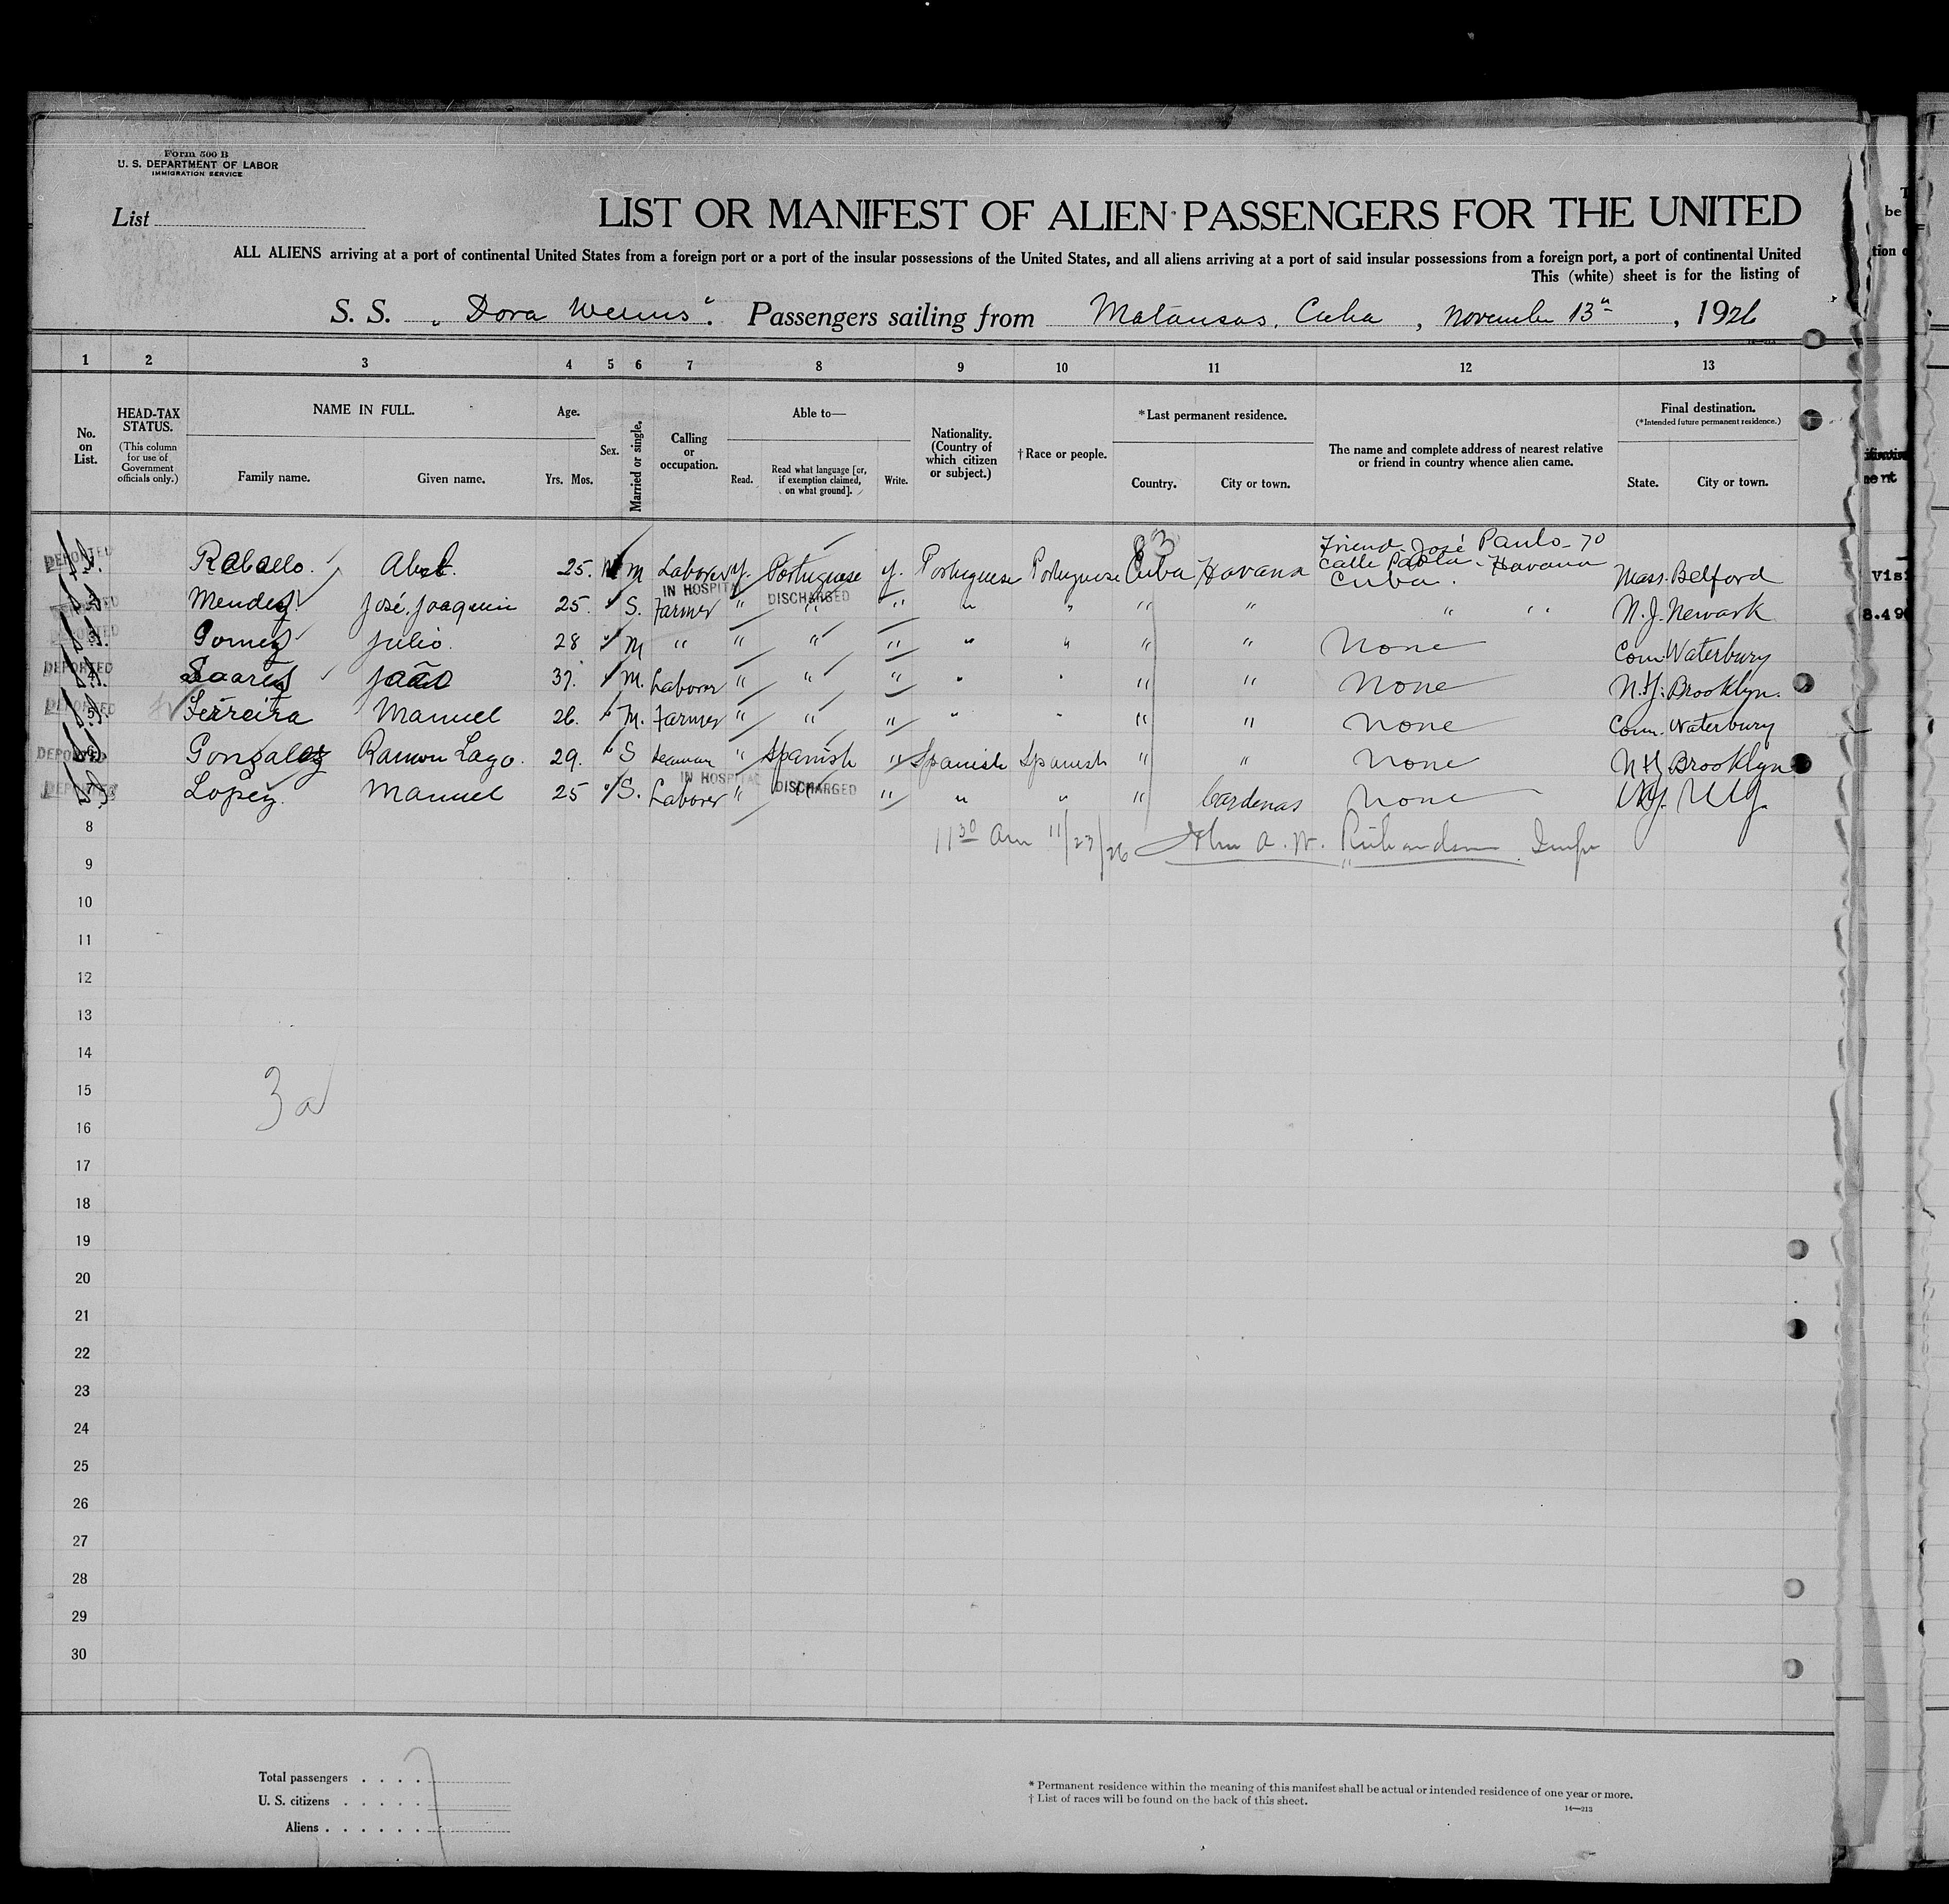 Form 500 B
U. S. DEPARTMENT OF LABOR
IMMIGRATION SERVICE
List
LIST OR MANIFEST OF ALIEN PASSENGERS FOR THE UNITED
ALL ALIENS arriving at a port of continental United States from a foreign port or a port of the insular possessions of the United States, and all aliens arriving at a port of said insular possessions from a foreign port, a port of continental United
This (white) sheet is for the listing of
S. S. "Dora Weems". Passengers sailing from Matansas, Cuba, November 13", 1926
1 2 3 4 5 6 7 8 9 10 11 12 13
No. on List.
HEAD-TAX STATUS.
(This column for use of Government officials only.)
NAME IN FULL.
Family name. Given name.
Age.
Yrs. Mos.
Sex.
Married or single.
Calling or occupation.
Able to—
Read.
Read what language [or, if exemption claimed, on what ground].
Write.
Nationality. (Country of which citizen or subject.)
†Race or people.
*Last permanent residence.
Country. City or town.
The name and complete address of nearest relative or friend in country whence alien came.
Final destination.
(*Intended future permanent residence.)
State. City or town.
83
Friend José Paulo - 70
Calle Paola - Havana
Cuba.
DEPORTED Rabaello. 25. m Laborer y. Portuguese y. Portuguese Portuguese Cuba Havana Mass. Bedford
IN HOSPITAL DISCHARGED
DEPORTED Mendez José Joaquin 25. S. Farmer " " " " " " " " " N. J. Newark
DEPORTED Gomez Julio. 28 m " " " " " " " " None Conn. Waterbury
DEPORTED Soares João 37. M. Laborer " " " " " " " None N.Y. Brooklyn.
DEPORTED 5 Ferreira Manuel 26. M. Farmer " " " " " " " None Conn. Waterbury
DEPORTED 6 Gonzalez Ramon Lago. 29. S Seaman " Spanish " Spanish Spanish " " None N.Y. Brooklyn
IN HOSPITAL DISCHARGED
DEPORTED Lopez. Manuel 25 S. Laborer " " " " " " Cardenas None N.Y. N.Y.
8
11 30 am 11/23/26 John A. W. Richardson Insp
9
10
11
12
13
14
15
3a
16
17
18
19
20
21
22
23
24
25
26
27
28
29
30
Total passengers . . . . 7
U. S. citizens . . . . .
Aliens . . . . . .
* Permanent residence within the meaning of this manifest shall be actual or intended residence of one year or more.
† List of races will be found on the back of this sheet.
14—213